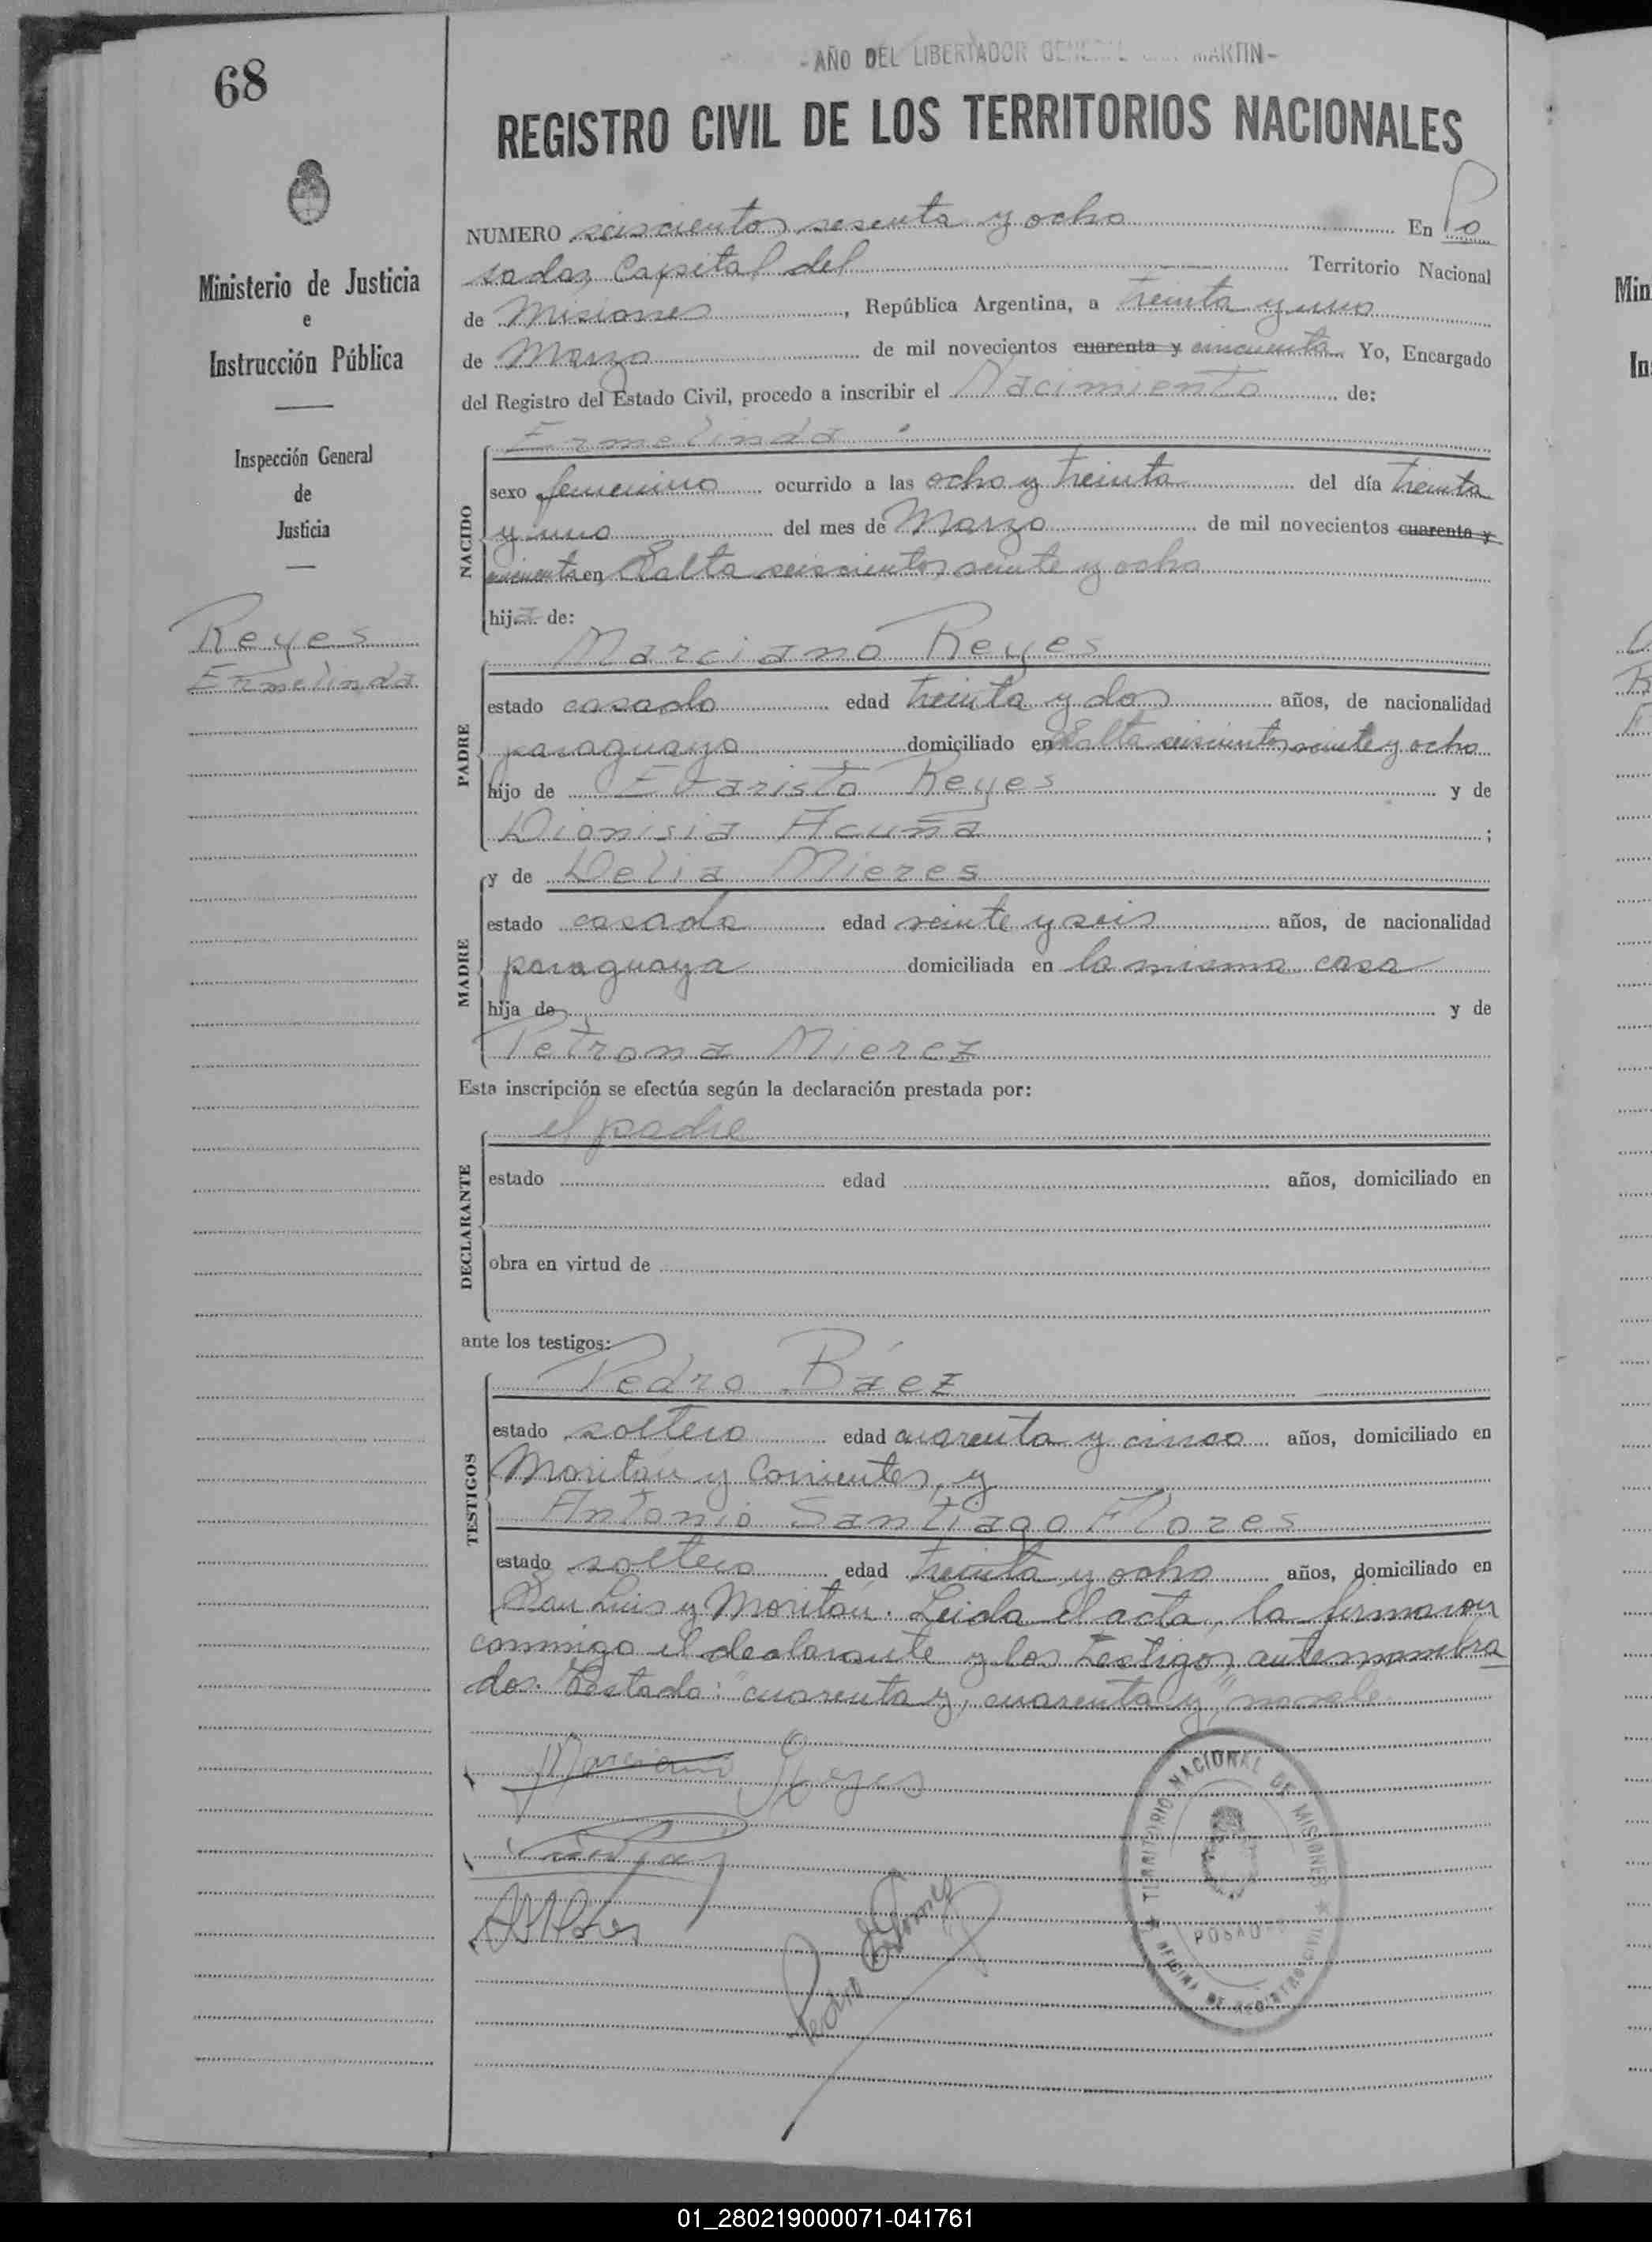 68
- AÑO DEL LIBERTADOR GENERAL SAN MARTIN -
REGISTRO CIVIL DE LOS TERRITORIOS NACIONALES
Ministerio de Justicia
e
Instrucción Pública
Inspección General
de
Justicia
Reyes
Ermelinda
NUMERO seiscientos sesenta y ocho En Po
sadas Capital del Territorio Nacional
de Misiones, República Argentina, a treinta y uno
de Marzo de mil novecientos cuarenta y cincuenta Yo, Encargado
del Registro del Estado Civil, procedo a inscribir el Nacimiento de:
Ermelinda
NACIDO
sexo femenino ocurrido a las ocho y treinta del día treinta
y uno del mes de Marzo de mil novecientos cuarenta y
cincuenta en Salta seiscientos veinte y ocho
hija de:
Marciano Reyes
PADRE
estado casado edad treinta y dos años, de nacionalidad
paraguayo domiciliado en Salta seiscientos veinte y ocho
hijo de Evaristo Reyes y de
Dionisia Acuña ;
y de Delia Mieres
MADRE
estado casada edad veinte y seis años, de nacionalidad
paraguaya domiciliada en la misma casa
hija de y de
Petrona Mierez
Esta inscripción se efectúa según la declaración prestada por:
el padre
DECLARANTE
estado edad años, domiciliado en
obra en virtud de
ante los testigos:
Pedro Báez
TESTIGOS
estado soltero edad cuarenta y cinco años, domiciliado en
Moritán y Corrientes y
Antonio Santiago Flores
estado soltero edad treinta y ocho años, domiciliado en
San Luis y Moritán. Leida el acta, la firmaron
conmigo el declarante y los testigos antenombra
dos. Testado: "cuarenta y, cuarenta y", no vale.
Marciano Reyes
ASFlores
Pedro Gomez
TERRITORIO NACIONAL DE MISIONES
POSADAS
OFICINA DE REGISTRO CIVIL
Min
In
01_280219000071-041761